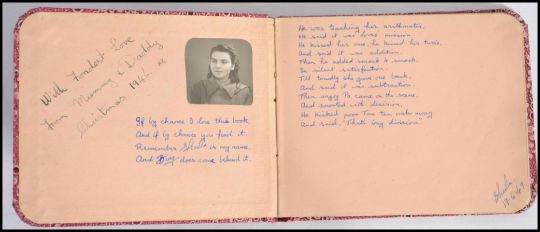 With Fondest Love
From Mummy & Daddy
Christmas 1946. xx
If by chance I lose this book,
And if by chance you find it.
Remember Sheila is my name.
And does come behind it.
He was teaching her arithmetic,
He said it was his mission
He kissed her once, he kissed her twice,
And said it was addition.
Then he added smack to smack
In silent satisfaction.
Till timidly she gave one back,
And said it was subtraction.
Then angry Pa came on the scene,
And snorted with decision,
He kicked poor Tom ten miles away
And said, "That's long division"
Sheila
18.6.47